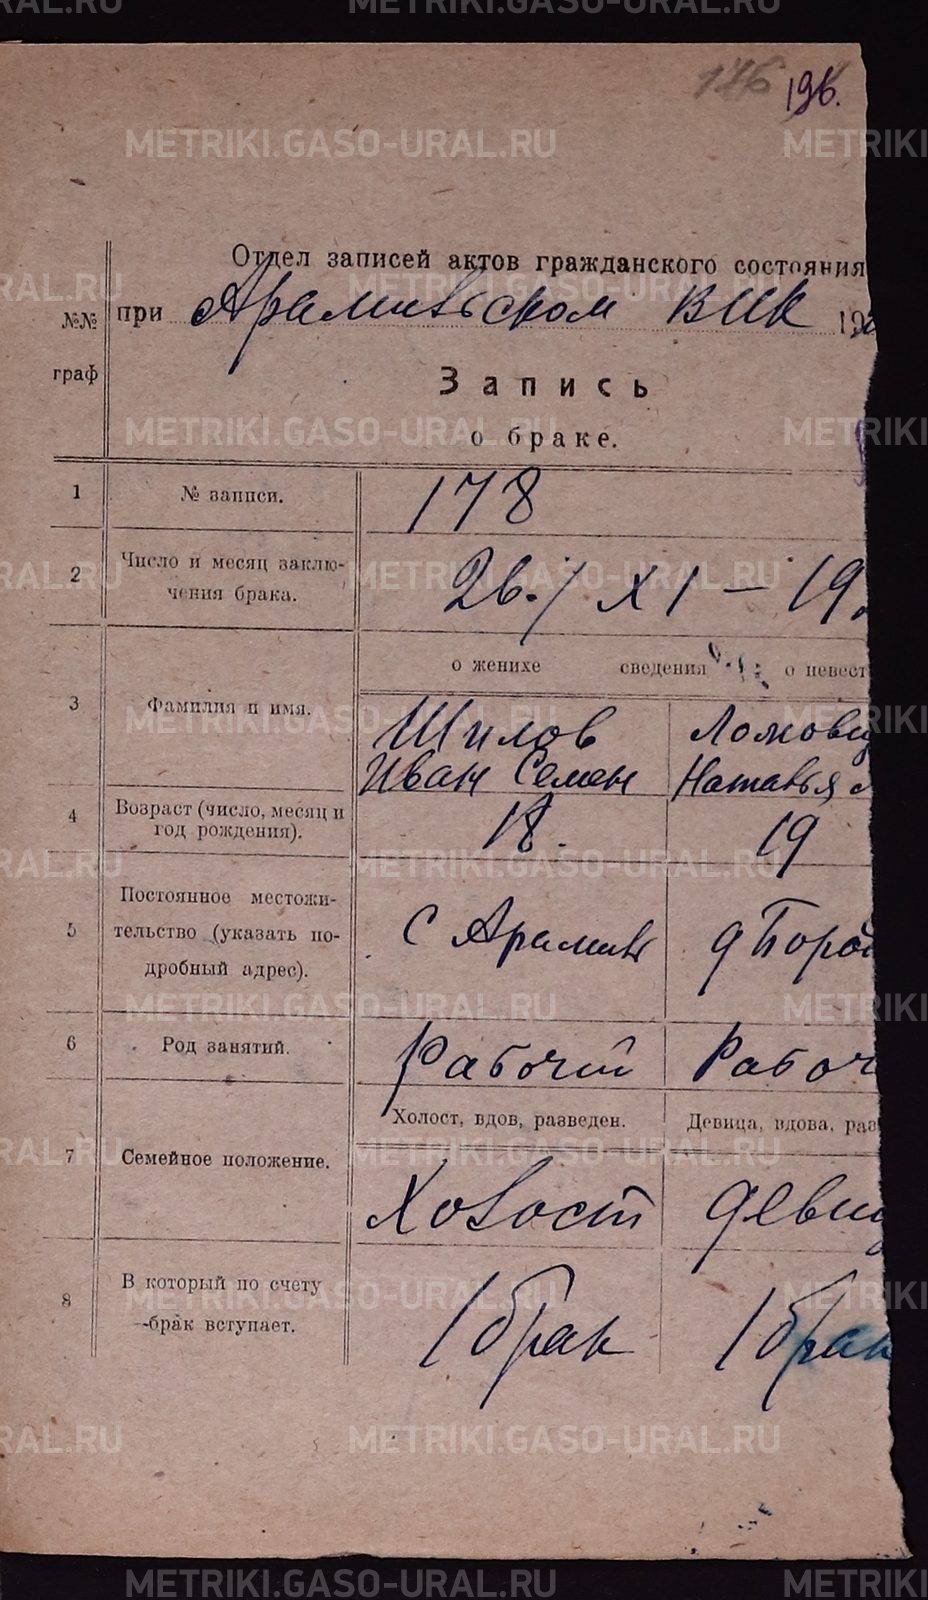 METRIKI.GASO-URAL.RU
176
196.
Отдел записей актов гражданского состояния
№№ граф
при Арамильском ВИК 19
Запись
о браке.
1 № записи. 178
2 Число и месяц заключения брака. 26 / XI – 19
о женихе сведения о невест
3 Фамилия и имя.
Шилов
Иван Семен
Наталья
4 Возраст (число, месяц и
год рождения). 18. 19
5 Постоянное местожи-
тельство (указать по-
дробный адрес).
С Арамиль
д Боро
6 Род занятий. Рабочий Рабоч
Холост, вдов, разведен. Девица, вдова, раз
7 Семейное положение. Холост Деви
8 В который по счету
брак вступает. 1 брак 1 брак